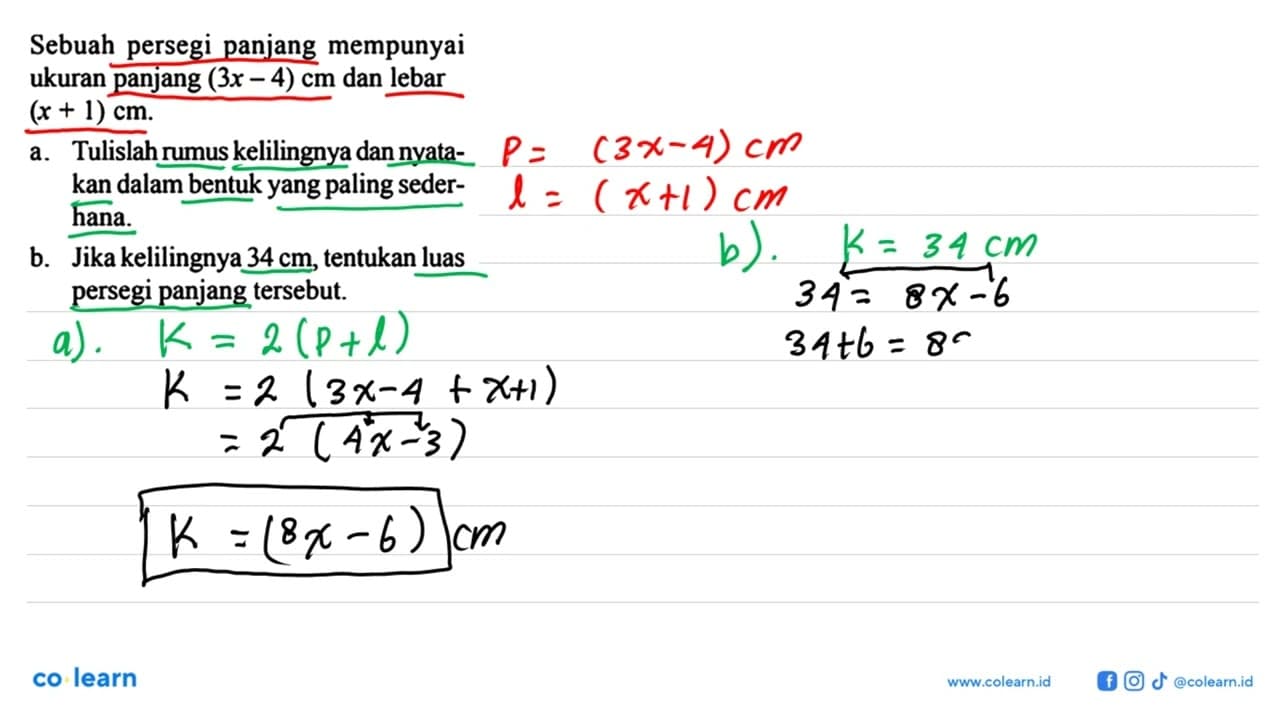 Sebuah persegi panjang mempunyai
ukuran panjang (3x – 4) cm dan lebar
(x + 1) cm.
a. Tulislah rumus kelilingnya dan nyata-
kan dalam bentuk yang paling seder-
hana.
b. Jika kelilingnya 34 cm, tentukan luas
persegi panjang tersebut.
P = (3x-4) cm
l = (x+1) cm
a). K = 2 (P+l)
K = 2 (3x-4 + x+1)
= 2 (4x-3)
K = (8x-6) cm
b). K = 34 cm
34 = 8x-6
34+6 = 8
co learn
www.colearn.id
@colearn.id